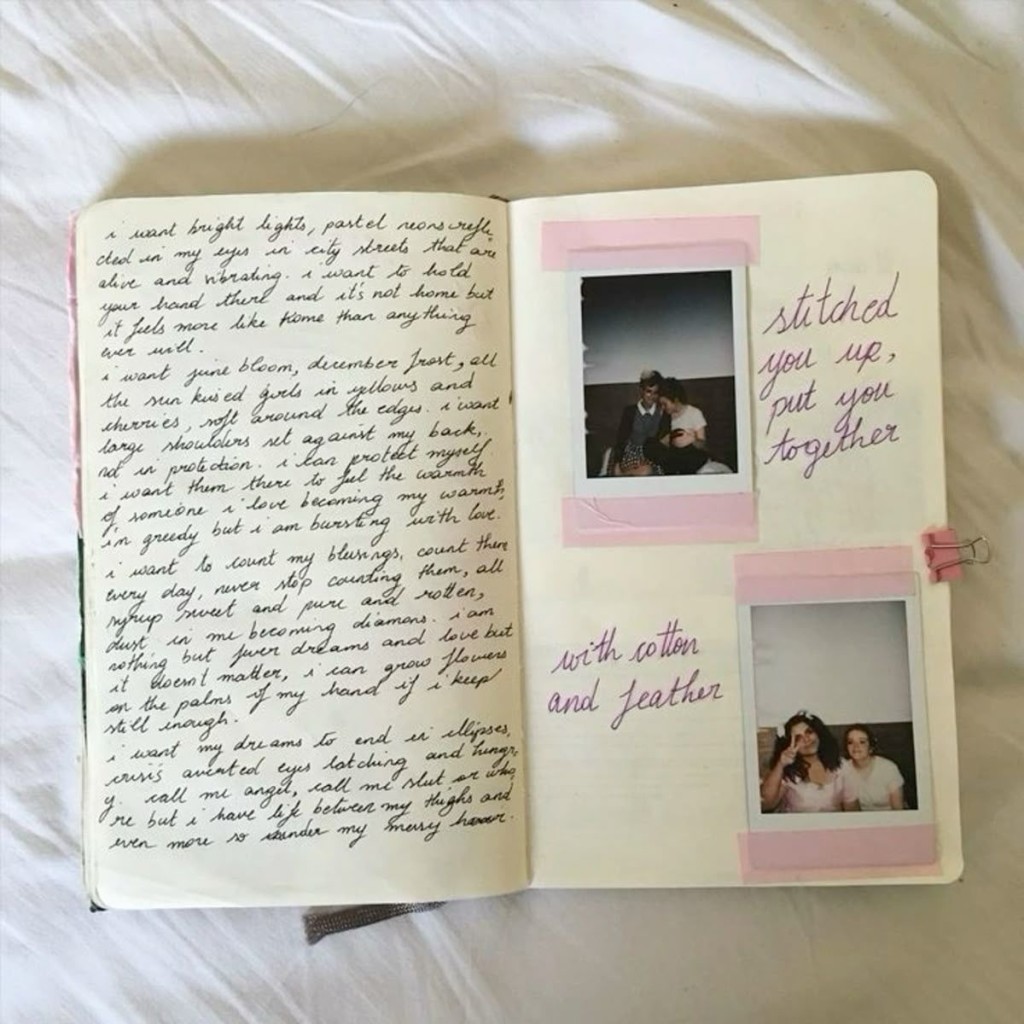 i want bright lights, pastel neons refle
cted in my eyes in city streets that are
alive and vibrating. i want to hold
your hand there and it's not home but
it feels more like home than anything
ever will.
i want june bloom, december frost, all
the sun kissed girls in yellows and
cherries, soft around the edges. i want
large shoulders set against my back,
not in protection. i can protect myself.
i want them there to feel the warmth
of someone i love becoming my warmth,
i'm greedy but i am bursting with love.
i want to count my blessings, count them
every day, never stop counting them, all
syrup sweet and pure and rotten,
dust in me becoming diamons. i am
nothing but fever dreams and love but
it doesn't matter, i can grow flowers
on the palms of my hand if i keep
still enough.
i want my dreams to end in ellipses,
crisis averted eyes latching and hungr
y. call me angel, call me slut or who
re but i have life between my thighs and
even more so under my messy
stitched
you up,
put you
together
with cotton
and feather